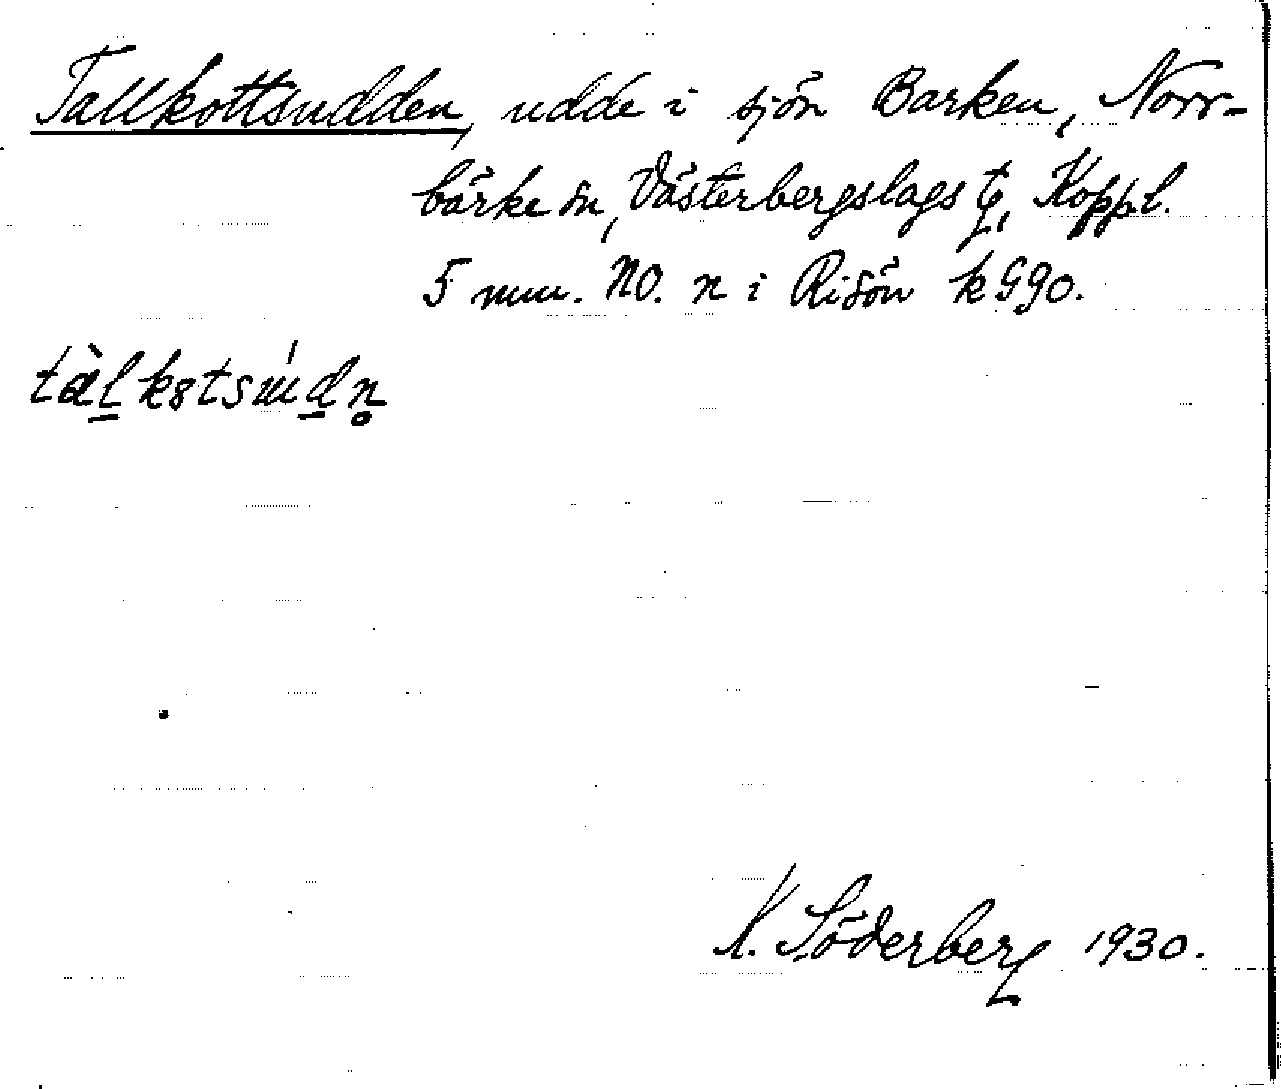 Tallkottsudden, udde i sjön Barken, Norr-
bärke sn, Västerbergslags tg, Koppl.
5 mm. NO. n i Risön k G90.
tàlkstsúdn
K. Söderberg 1930.